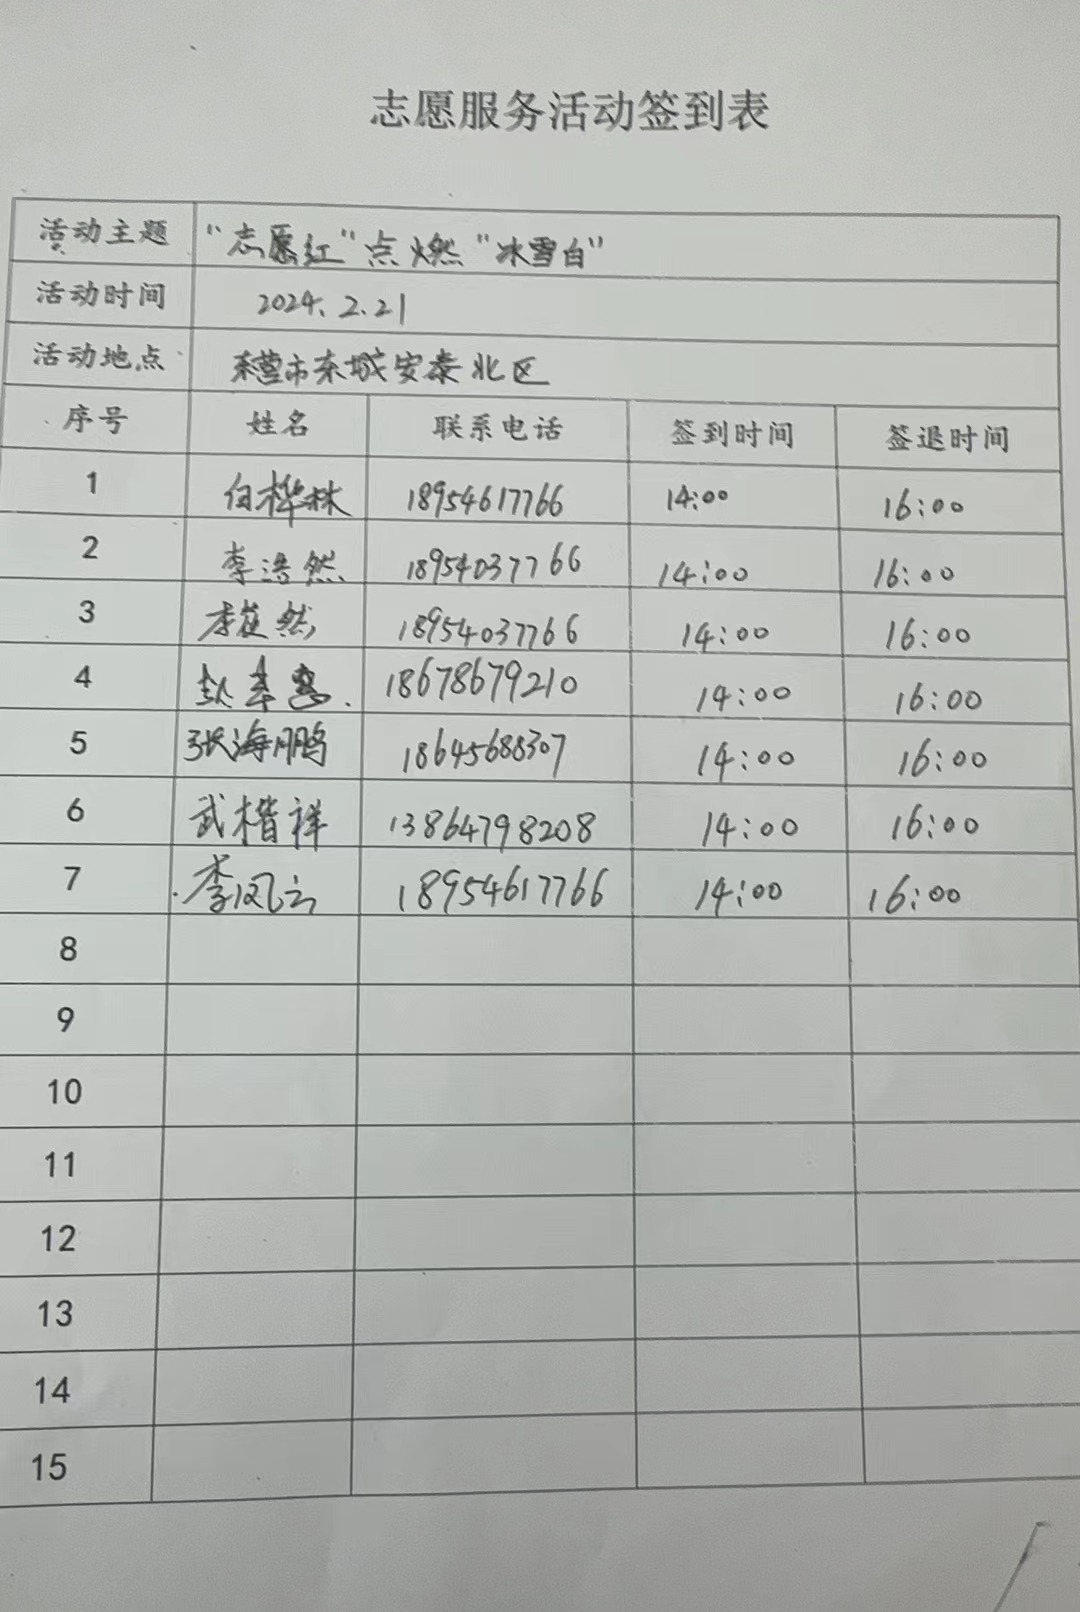 志愿服务活动签到表
活动主题 “志愿红”点燃“冰雪白”
活动时间 2024.2.21
活动地点 东营市东城安泰北区
序号 姓名 联系电话 签到时间 签退时间
1 白桦林 18954617766 14:00 16:00
2 李浩然 18954037766 14:00 16:00
3 李 然 18954037766 14:00 16:00
4 赵 18678679210 14:00 16:00
5 张海鹏 18645688307 14:00 16:00
6 武楷祥 13864798208 14:00 16:00
7 李凤云 18954617766 14:00 16:00
8
9
10
11
12
13
14
15